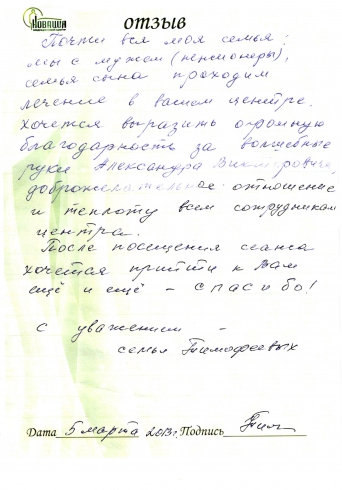 Новаша
ОТЗЫВ
Почти вся моя семья:
мы с мужем (пенсионеры),
семья сына проходим
лечение в вашем центре.
Хочется выразить огромную
благодарность за волшебные
руки Александра Викторовича,
доброжелательное отношение
и теплоту всем сотрудникам
центра.
После посещения сеанса
хочется прийти к Вам
ещё и ещё – спасибо!
с уважением –
семья Тимофеевых
Дата 5 марта 2013г Подпись Тим